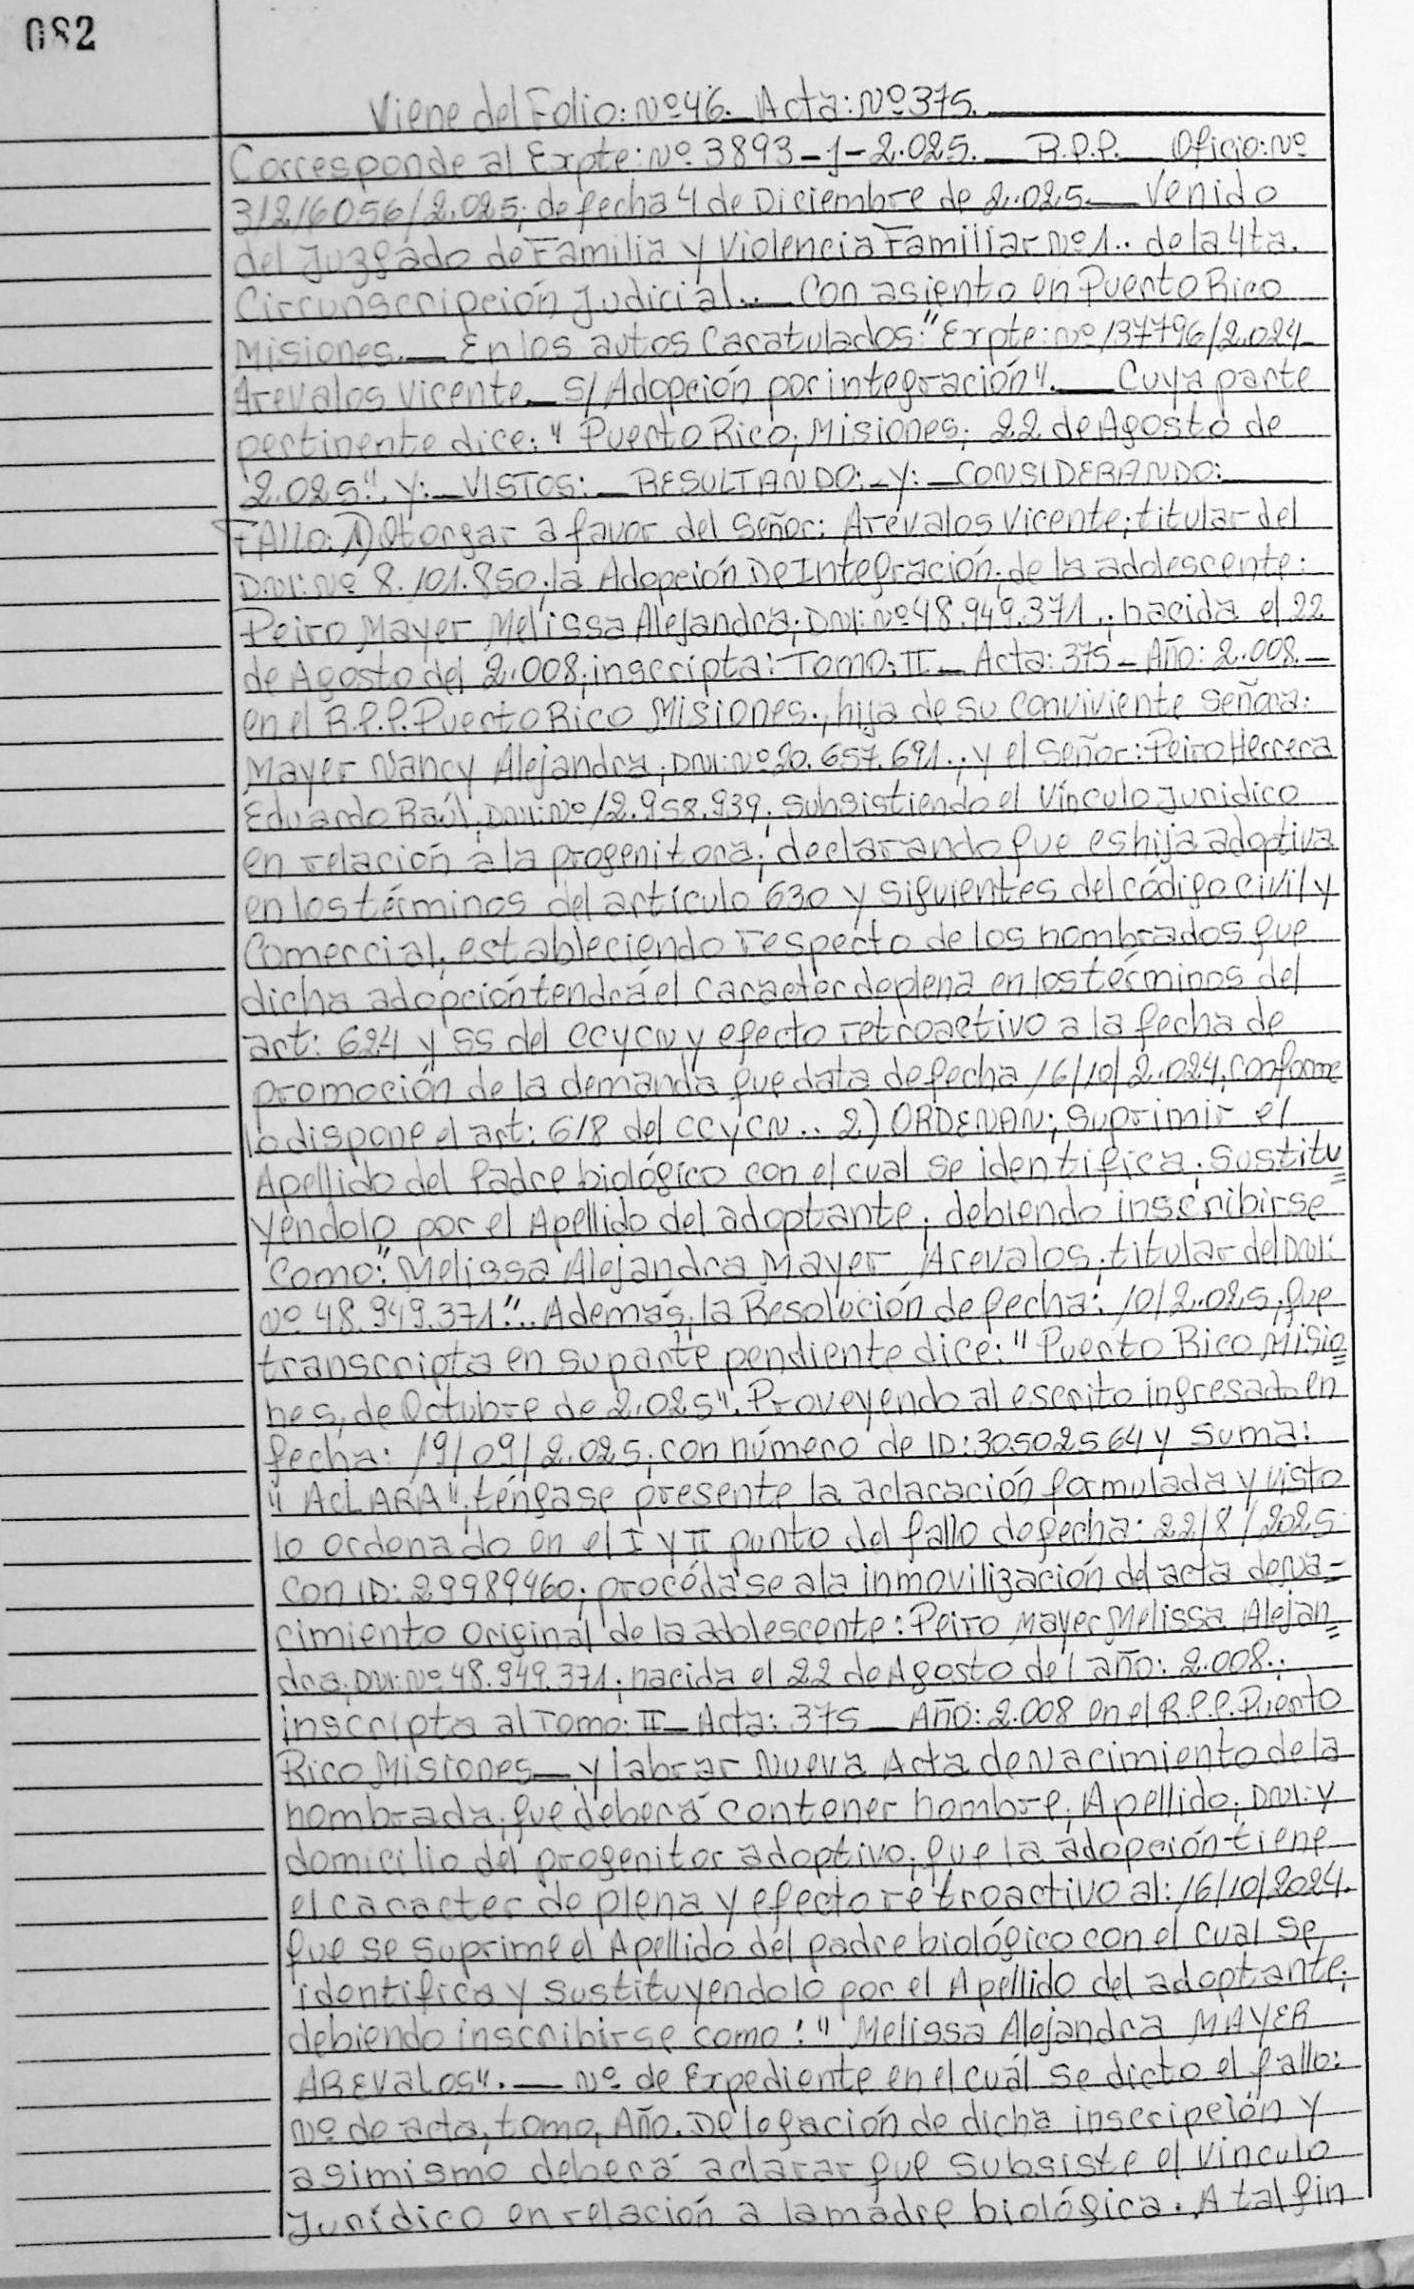 082
Viene del Folio: Nº 46. Acta: Nº 375.
Corresponde al Expte: Nº 3893-J-2.025. R.P.P. Oficio: Nº
312/6056/2.025; de fecha 4 de Diciembre de 2.025. Venido
del Juzgado de Familia y Violencia Familiar Nº 1.. de la 4ta.
Circunscripción Judicial.. Con asiento en Puerto Rico
Misiones. En los autos Caratulados: "Expte: Nº 137796/2.024
Arevalos Vicente S/ Adopción por integración". Cuya parte
pertinente dice: "Puerto Rico; Misiones; 22 de Agosto de
2.025". Y: VISTOS: RESULTANDO: Y: CONSIDERANDO:
FALLO: 1) Otorgar a favor del Señor: Arévalos Vicente; titular del
DNI: Nº 8.101.850; la Adopción De Integración; de la adolescente:
Peiro Mayer Melissa Alejandra; DNI: Nº 48.949.371.; nacida el 22
de Agosto del 2.008; inscripta: Tomo: II - Acta: 375 - Año: 2.008.
en el R.P.P. Puerto Rico Misiones., hija de su conviviente Señora:
Mayer Nancy Alejandra; DNI: Nº 20.657.691.; y el Señor: Peiro Herrera
Eduardo Raúl; DNI: Nº 12.958.939; subsistiendo el Vínculo Juridico
en relación a la progenitora; declarando que es hija adoptiva
en los términos del artículo 630 y siguientes del código Civil y
Comercial, estableciendo respecto de los nombrados que
dicha adopción tendrá el caracter de plena en los términos del
art: 624 y ss del CCyCN y efecto retroactivo a la fecha de
promoción de la demanda que data de fecha 16/10/2.024, conforme
lo dispone el art: 618 del CCyCN.. 2) ORDENAN; suprimir el
Apellido del Padre biológico con el cual se identifica; Sustitu=
yéndolo por el Apellido del adoptante; debiendo inscribirse
como: "Melissa Alejandra Mayer Arevalos; titular del DNI:
Nº 48.949.371".. Además; la Resolución de fecha: 10/2.025; que
transcripta en su parte pendiente dice: "Puerto Rico, Misio=
nes, de Octubre de 2.025". Proveyendo al escrito ingresado en
fecha: 19/09/2.025; con número de ID: 30502564 y Suma:
"ACLARA"; téngase presente la aclaración formulada y visto
lo ordenado en el I y II punto del fallo de fecha: 22/8/2025
con ID: 29989460; procédase a la inmovilización del acta de na=
cimiento original de la adolescente: Peiro Mayer Melissa Alejan=
dra; DNI: Nº 48.949.371; nacida el 22 de Agosto del año: 2.008.;
inscripta al Tomo: II - Acta: 375 - Año: 2.008 en el R.P.P. Puerto
Rico Misiones y labrar Nueva Acta de Nacimiento de la
nombrada; que deberá contener nombre; Apellido; DNI: y
domicilio del progenitor adoptivo; que la adopción tiene
el caracter de plena y efecto retroactivo al: 16/10/2024.
que se suprime el Apellido del padre biológico con el cual se
identifica y sustituyendolo por el Apellido del adoptante;
debiendo inscribirse como: "Melissa Alejandra MAYER
AREVALOS". Nº de Expediente en el cuál se dicto el fallo:
Nº de acta, tomo, Año. Delegación de dicha inscripción y
asimismo deberá aclarar que subsiste el vinculo
Jurídico en relación a la madre biológica. A tal fin